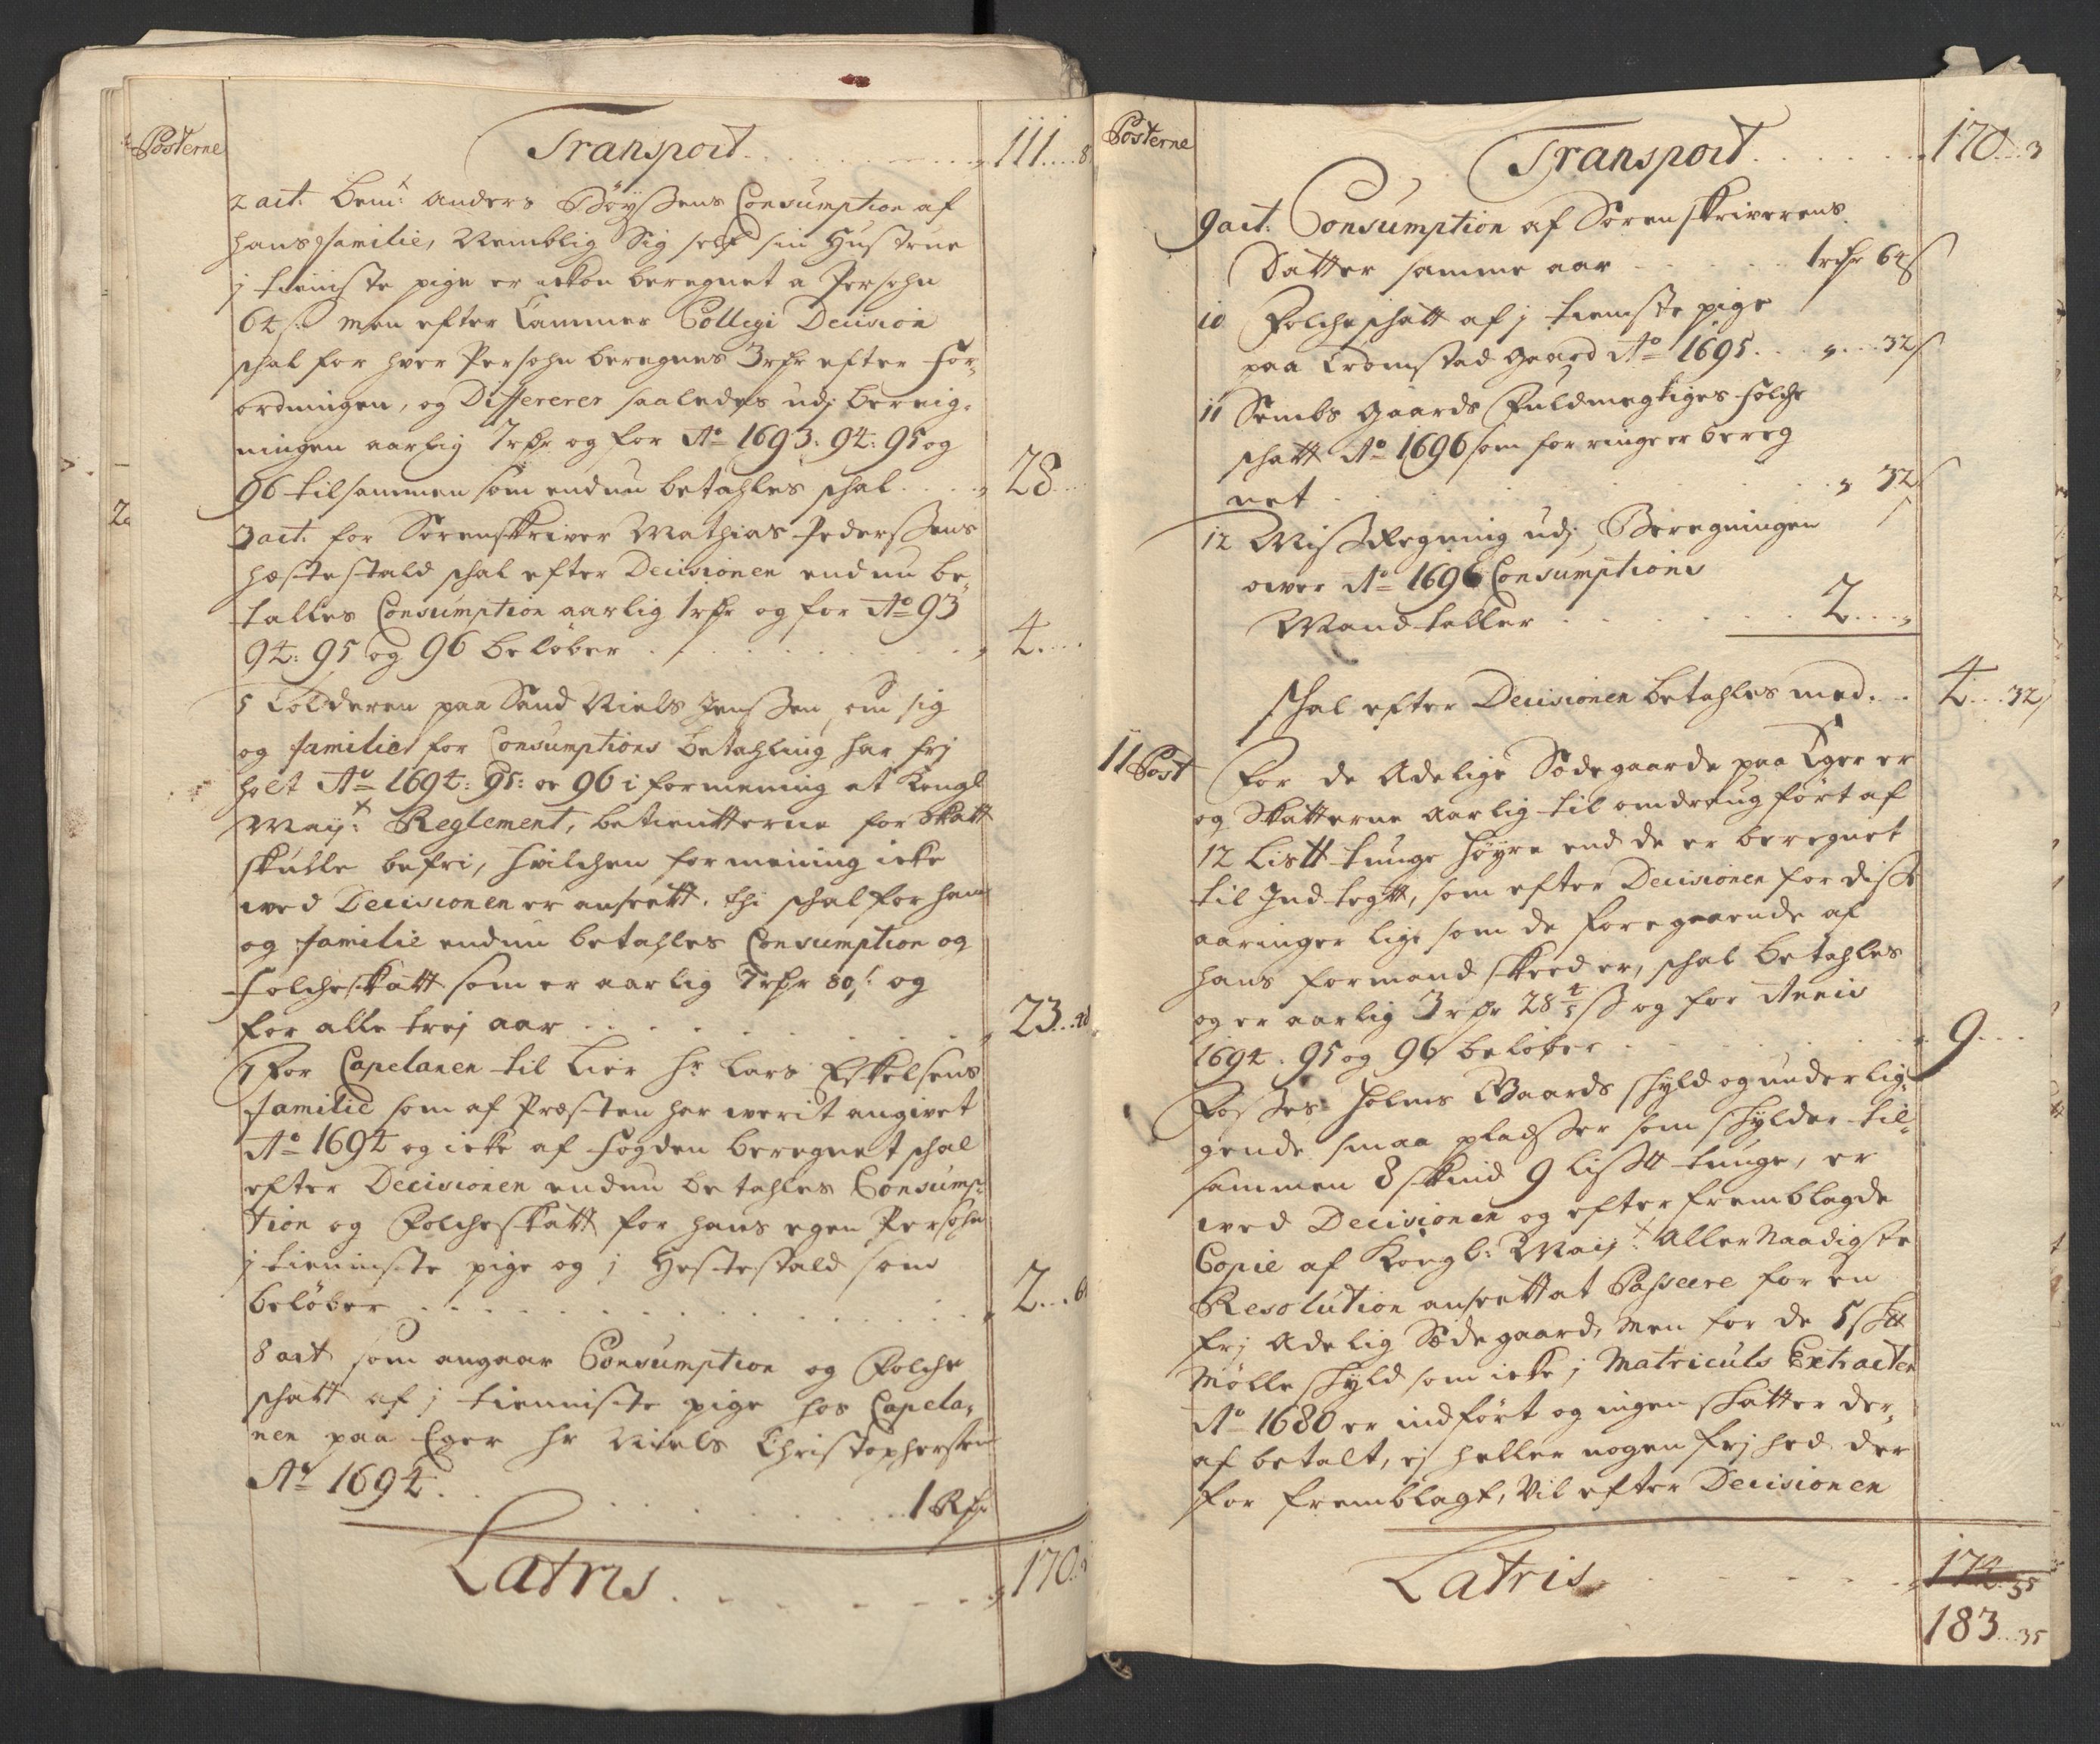 Posterne
Transport 111 8
2 art: bem:t Anders Böyssens Consumption af
hans familie, Nemblig Sig self sin Hustrue
j tieniste pige er ickon beregnet a Persohn
64 s: men efter Cammer Collegi Decision
schal for hver Persohn beregnes 3 rdr efter for¬
ordningen, og Differerer saaledes udj bereig¬
ningen aarlig 7 rdr og for Ao 1693: 94: 95 og
96 tilsammen som endnu betahles schal 28
3 art: for Sorenskriver Mathias Pederssens
hæstestald schal efter Decisionen endnu be¬
talles Consumption aarlig 1 rdr og for Ao 93
94: 95 og 96 beløber 4
5 Tolderen paa Sand Niels Jenssen, om sig
og familie for Consumptions betahling har frj
holt Ao 1694: 95: oc 96 i formening at Kongl
May:t Reglement, betientterne for Skatt
skulle befri, hvilchen formening icke
wed Decisionen er anseett. thi schal for ham
og familie endnu betahles Consumption og
Folcheskatt som er aarlig 7 rdr 80 s: og
for alle trej aar 23
7 For Capelanen til Lier Hr Lars Eskelsens
familie som af Præsten har werit angivet
Ao 1694 og icke af Fogden beregnet schal
efter Decisionen endnu betahles Consump¬
tion og Folcheskatt for hans egen Persohn
j tienniste pige og j Hestestald som
beløber 2
8 art som angaar Consumption og Folche
schatt af j tienniste pige hos Capela¬
nen paa Eger Hr Niels Christophersen
Ao 1694 1 Rdr
Latris 170
Posterne
Transport 170 3
9 art: Consumption af Sorenskriverens
Datter samme aar 1 rdr 64 s
10 Folcheschatt af j tieniste pige
paa Cromstad Gaard Ao 1695 32 s
11 Sembs Gaards Fuldmegtiges Folche
schatt Ao 1696 som for ringe er bereg
net 32 s
12 Misz Regning udj Beregningen
over Ao 1696 Consumptions
Mandtaller 2
schal efter Decisionen betahles med 4 32
11 Post
For de Adelige Sædegaarde paa Eger er
og Skatterne aarlig til omdraug ført af
12 Listt tunge høyre end de er beregnet
til Indtegtt, som efter Decisionen for disse
aaringer lige som de foregaaende af
hans formand skeed er, schal betahles
og er aarlig 3 rdr 28 4/5 s og for Annis
1694: 95 og 96 beløber 9
Fosses Holms Gaards schyld og underlig¬
gende smaa pladsser som schylder til¬
sammen 8 skind 9 lisstt tunge, er
wed Decisionen og efter fremblagde
Copie af Kongl: May:t Aller Naadigste
Resolution anseett at Passere for en
frj Adelig Sædegaard, Men for de 5 sktt
Mølle schyld som icke j Matriculs Extracten
Ao 1680 er indført og ingen schatter der¬
af betalt, ej heller nogen frjhed der
for fremblagt, Vil efter Decisionen
Latris 174 35
183 35